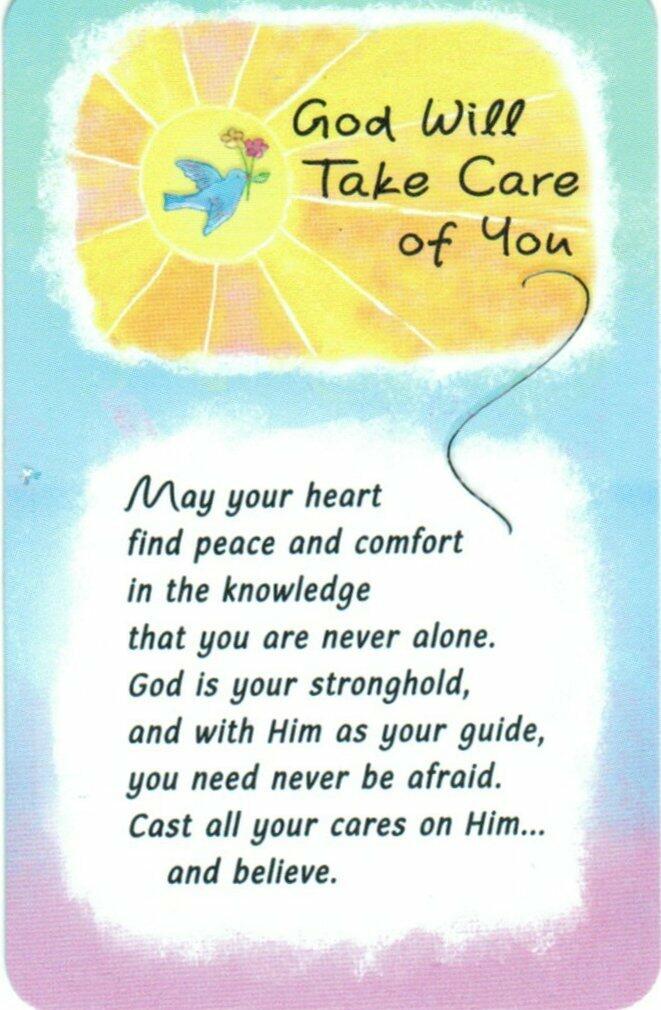 God Will
Take Care
of You
May your heart
find peace and comfort
in the knowledge
that you are never alone.
God is your stronghold,
and with Him as your guide,
you need never be afraid.
Cast all your cares on Him...
and believe.